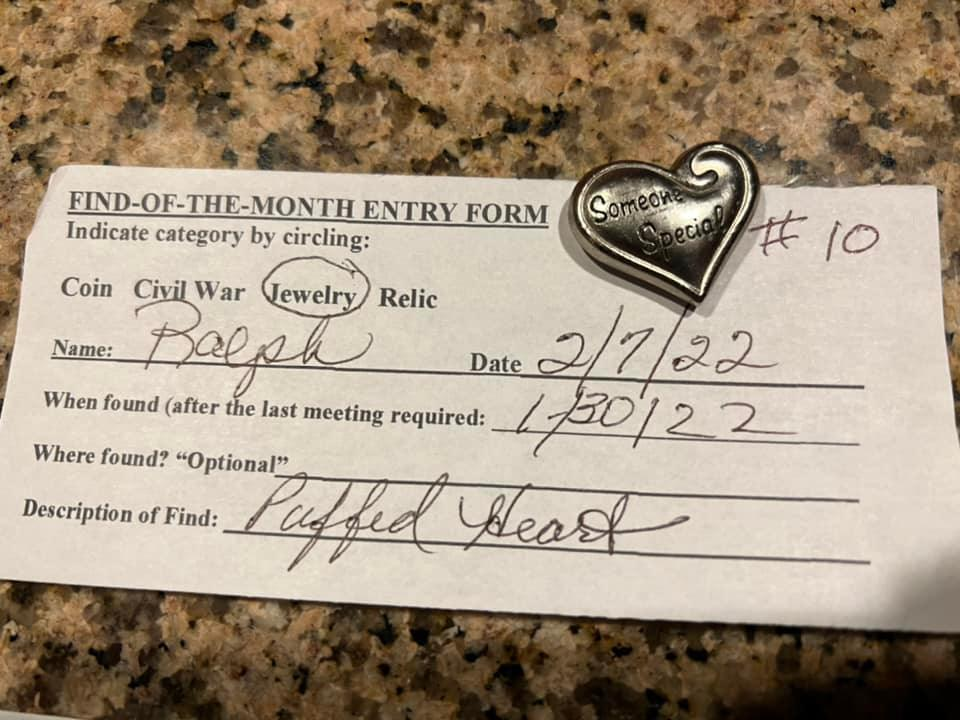 FIND-OF-THE-MONTH ENTRY FORM
Indicate category by circling:
Someone
Special
# 10
Coin Civil War Jewelry Relic
Name: Ralph Date 2/7/22
When found (after the last meeting required: 1/30/22
Where found? “Optional”
Description of Find: Puffed Heart